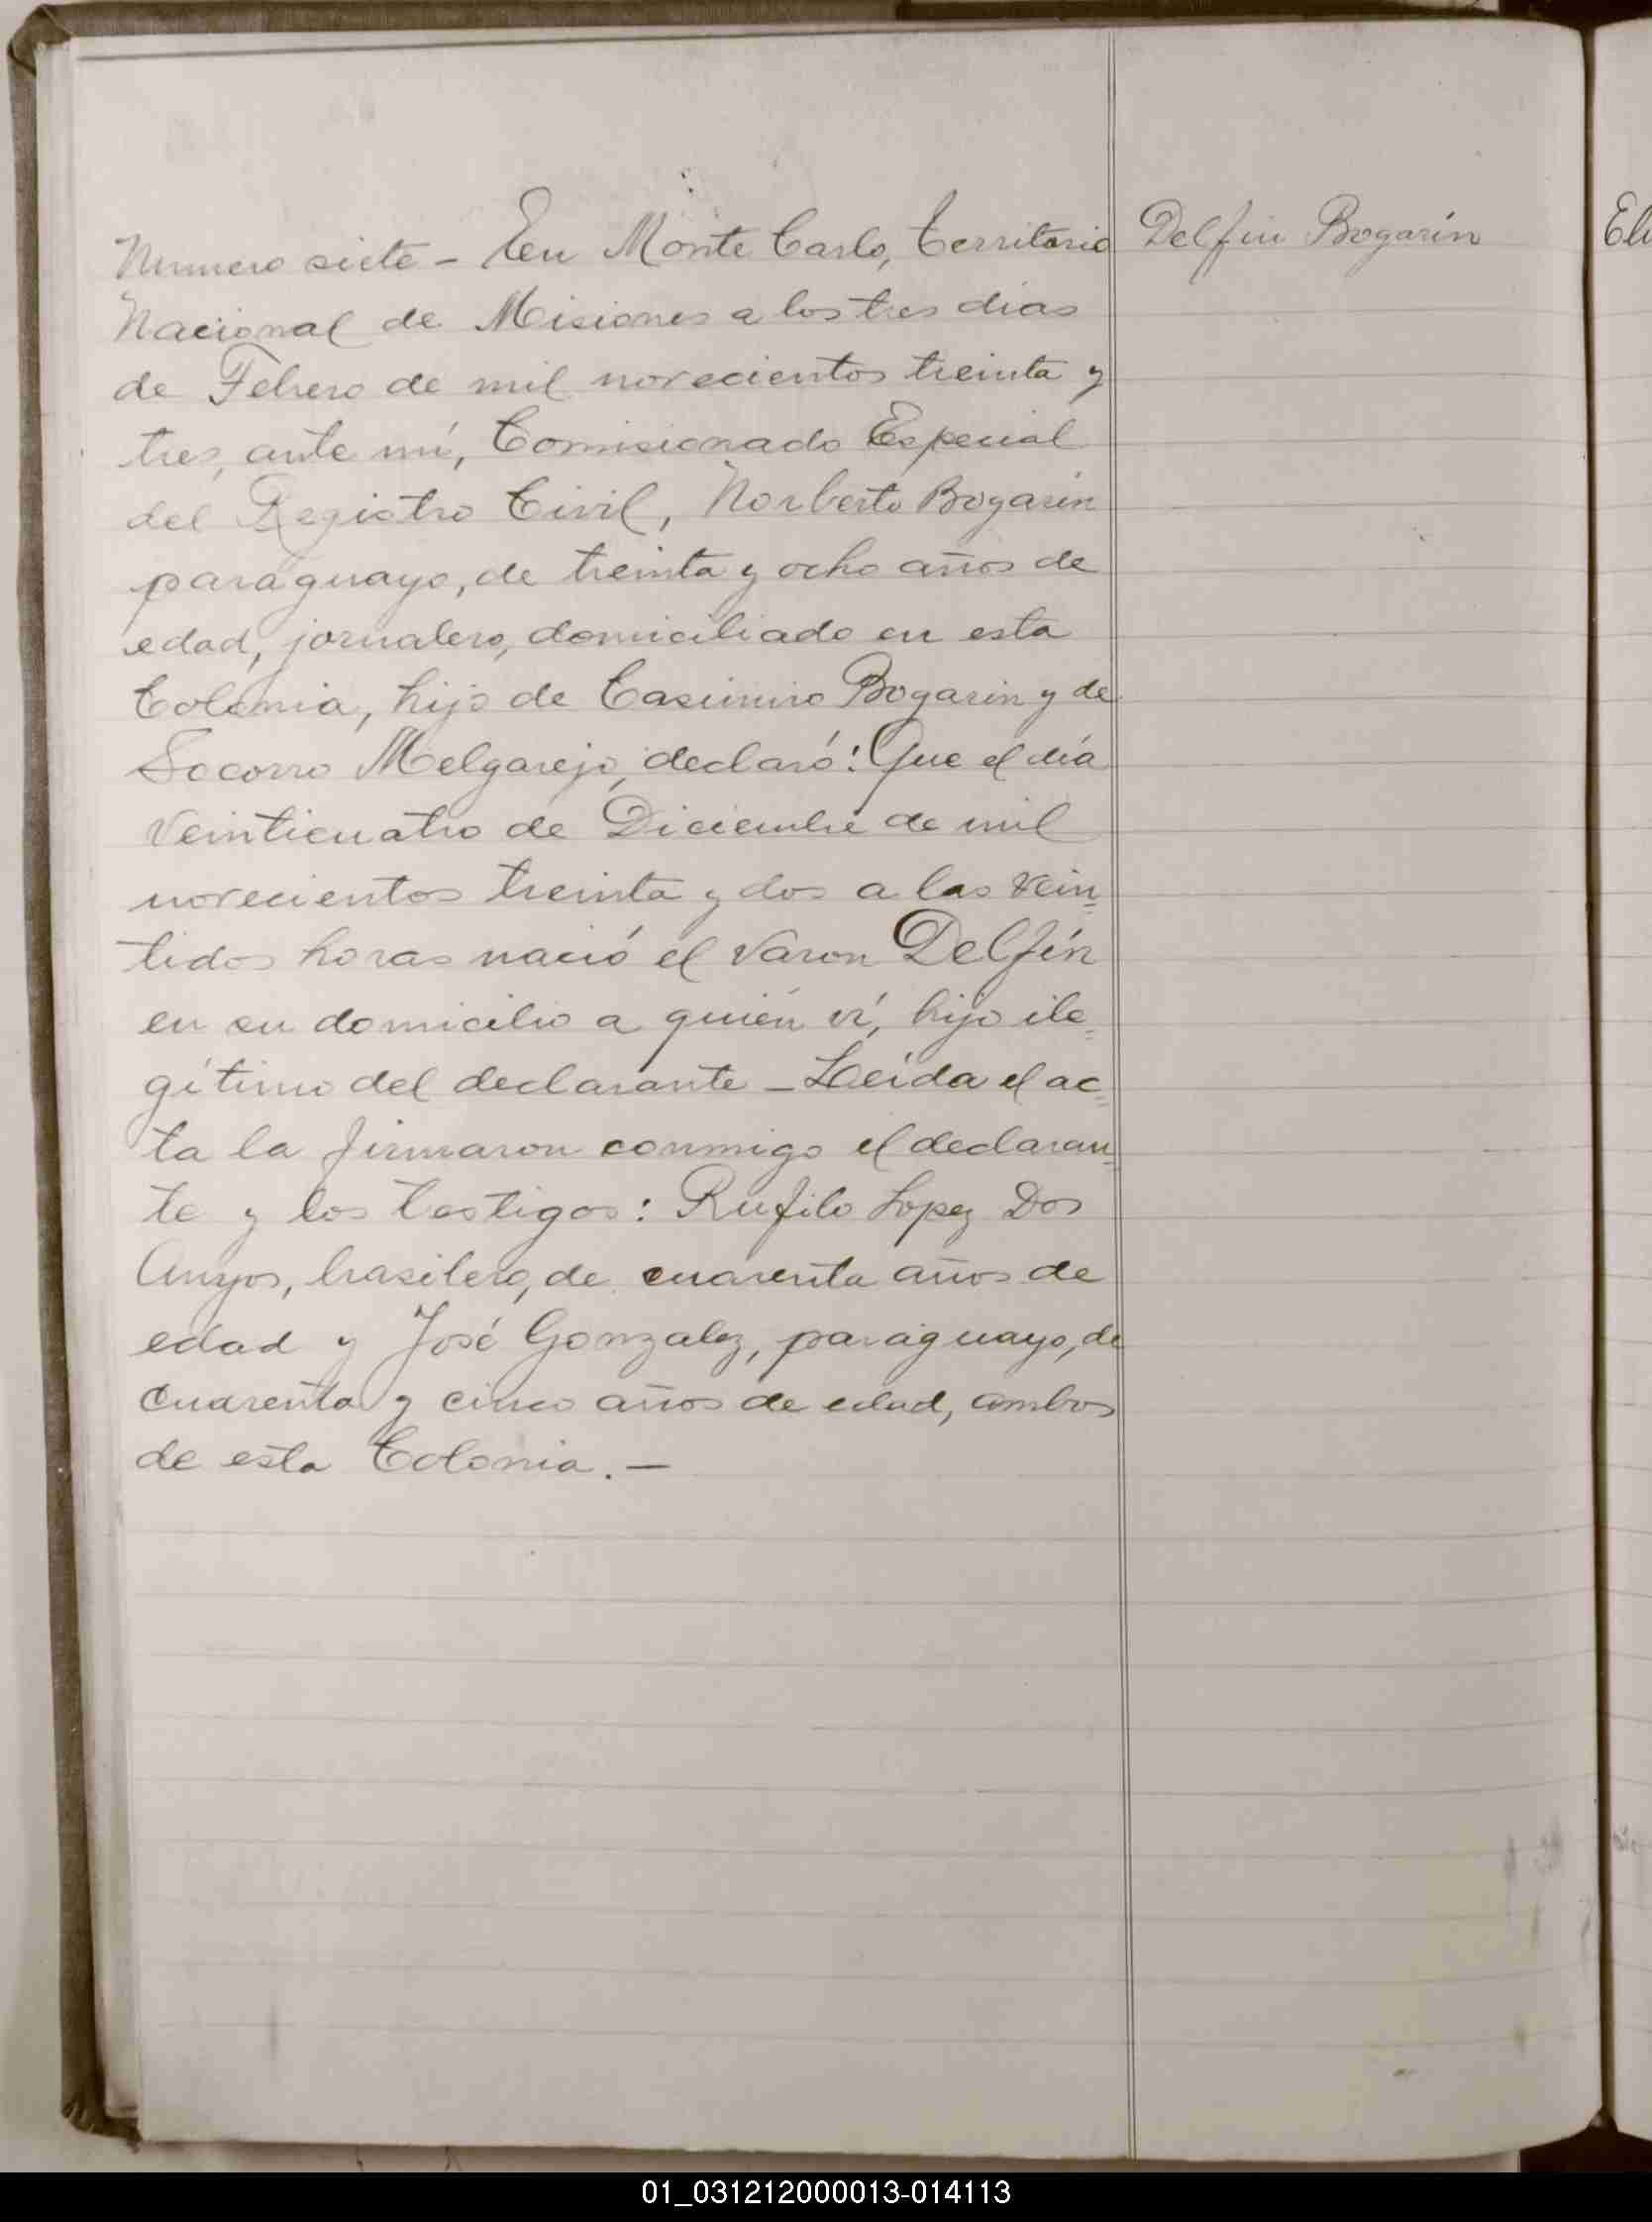 Numero siete - En Monte Carlo, Territorio
Nacional de Misiones a los tres dias
de Febrero de mil novecientos treinta y
tres, ante mí, Comisionado Especial
del Registro Civil, Norberto Bogarin
paraguayo, de treinta y ocho años de
edad, jornalero, domiciliado en esta
Colonia, hijo de Casimiro Bogarin y de
Socorro Melgarejo, declaró: Que el día
veinticuatro de Diciembre de mil
novecientos treinta y dos a las vein=
tidos horas nació el varon Delfín
en su domicilio a quién ví, hijo ile=
gítimo del declarante - Leída el ac=
ta la firmaron conmigo el declaran=
te y los testigos: Rufilo Lopez Dos
Anyos, brasilero, de cuarenta años de
edad y José Gonzalez, paraguayo, de
cuarenta y cinco años de edad, ambos
de esta Colonia. -
Delfin Bogarín
01_031212000013-014113